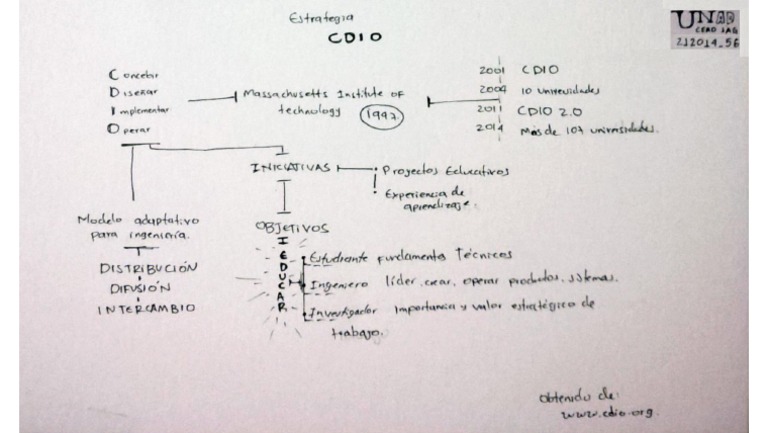 Estrategia
CDIO
UNAD
CEAD JAG
212014_56
Concebir
Diseñar
Implementar
Operar
Massachusetts Institute of
technology 1997
2001 CDIO
2004 10 universidades
2011 CDIO 2.0
2014 más de 107 universidades.
INICIATIVAS
Proyectos Educativos
Experiencia de
aprendizaje.
Modelo adaptativo
para ingeniería.
DISTRIBUCIÓN
DIFUSIÓN
INTERCAMBIO
OBJETIVOS
EDUCAR
Estudiante fundamentos Técnicos
Ingeniero líder, crear, operar productos, sistemas.
Investigador Importancia y valor estratégico de
trabajo.
Obtenido de:
www.cdio.org.